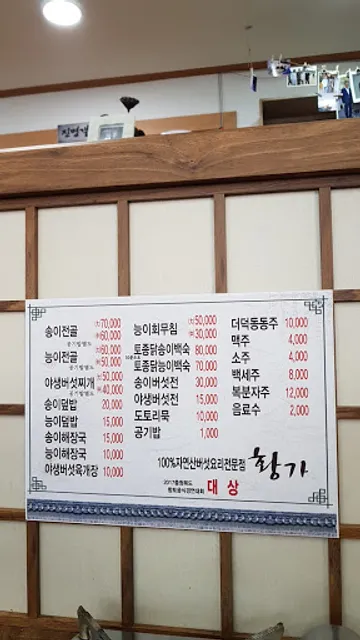 송이전골 (대)70,000
(중)60,000
공기밥별도
능이전골 (대)60,000
(중)50,000
공기밥별도
야생버섯찌개 (대)50,000
(중)40,000
공기밥별도
송이덮밥 20,000
능이덮밥 15,000
송이해장국 15,000
능이해장국 10,000
야생버섯육개장 10,000
능이회무침 (대)50,000
(중)30,000
토종닭송이백숙 80,000
토종닭능이백숙 70,000
송이버섯전 30,000
야생버섯전 15,000
도토리묵 10,000
공기밥 1,000
더덕동동주 10,000
맥주 4,000
소주 4,000
백세주 8,000
복분자주 12,000
음료수 2,000
100%자연산버섯요리전문점 황가
대상